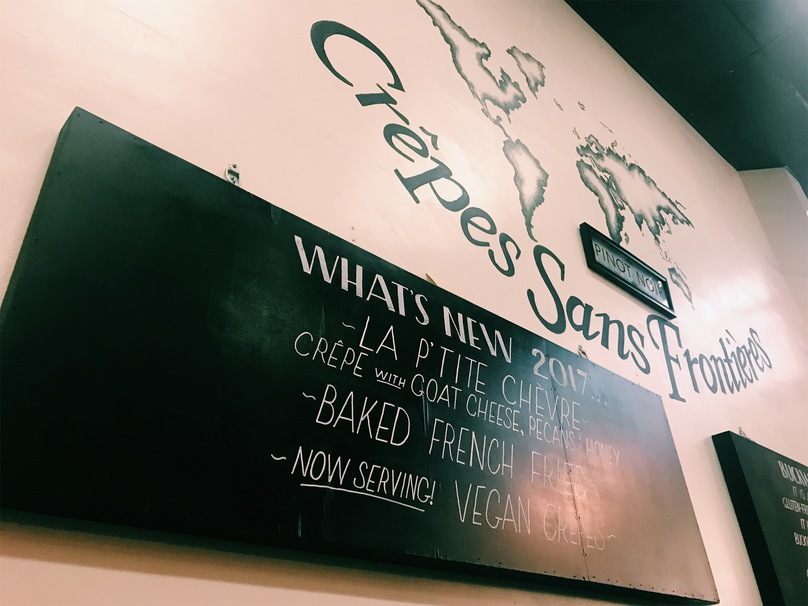 Crêpes Sans Frontières
PINOT NOIR
WHAT'S NEW 2017...
~LA P'TITE CHÈVRE~
CRÊPE WITH GOAT CHEESE, PECANS, HONEY
~BAKED FRENCH FRIES
~NOW SERVING! VEGAN CRÊPES~
GLUTEN-FR